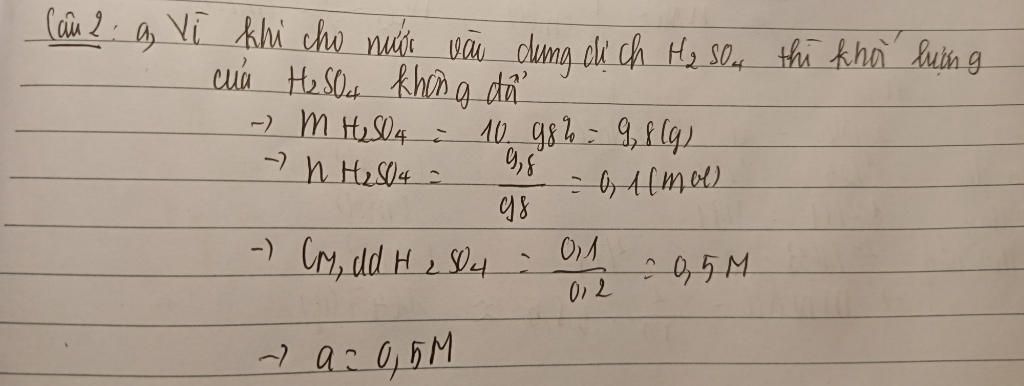 Câu 2: a, Vì khi cho nước vào dung dịch H₂SO₄ thì khối lượng
của H₂SO₄ không đổi
→ mH₂SO₄ = 10. 98% = 9,8(g)
→ nH₂SO₄ = 9,8/98 = 0,1(mol)
→ CM, dd H₂SO₄ = 0,1/0,2 = 0,5M
→ a = 0,5M